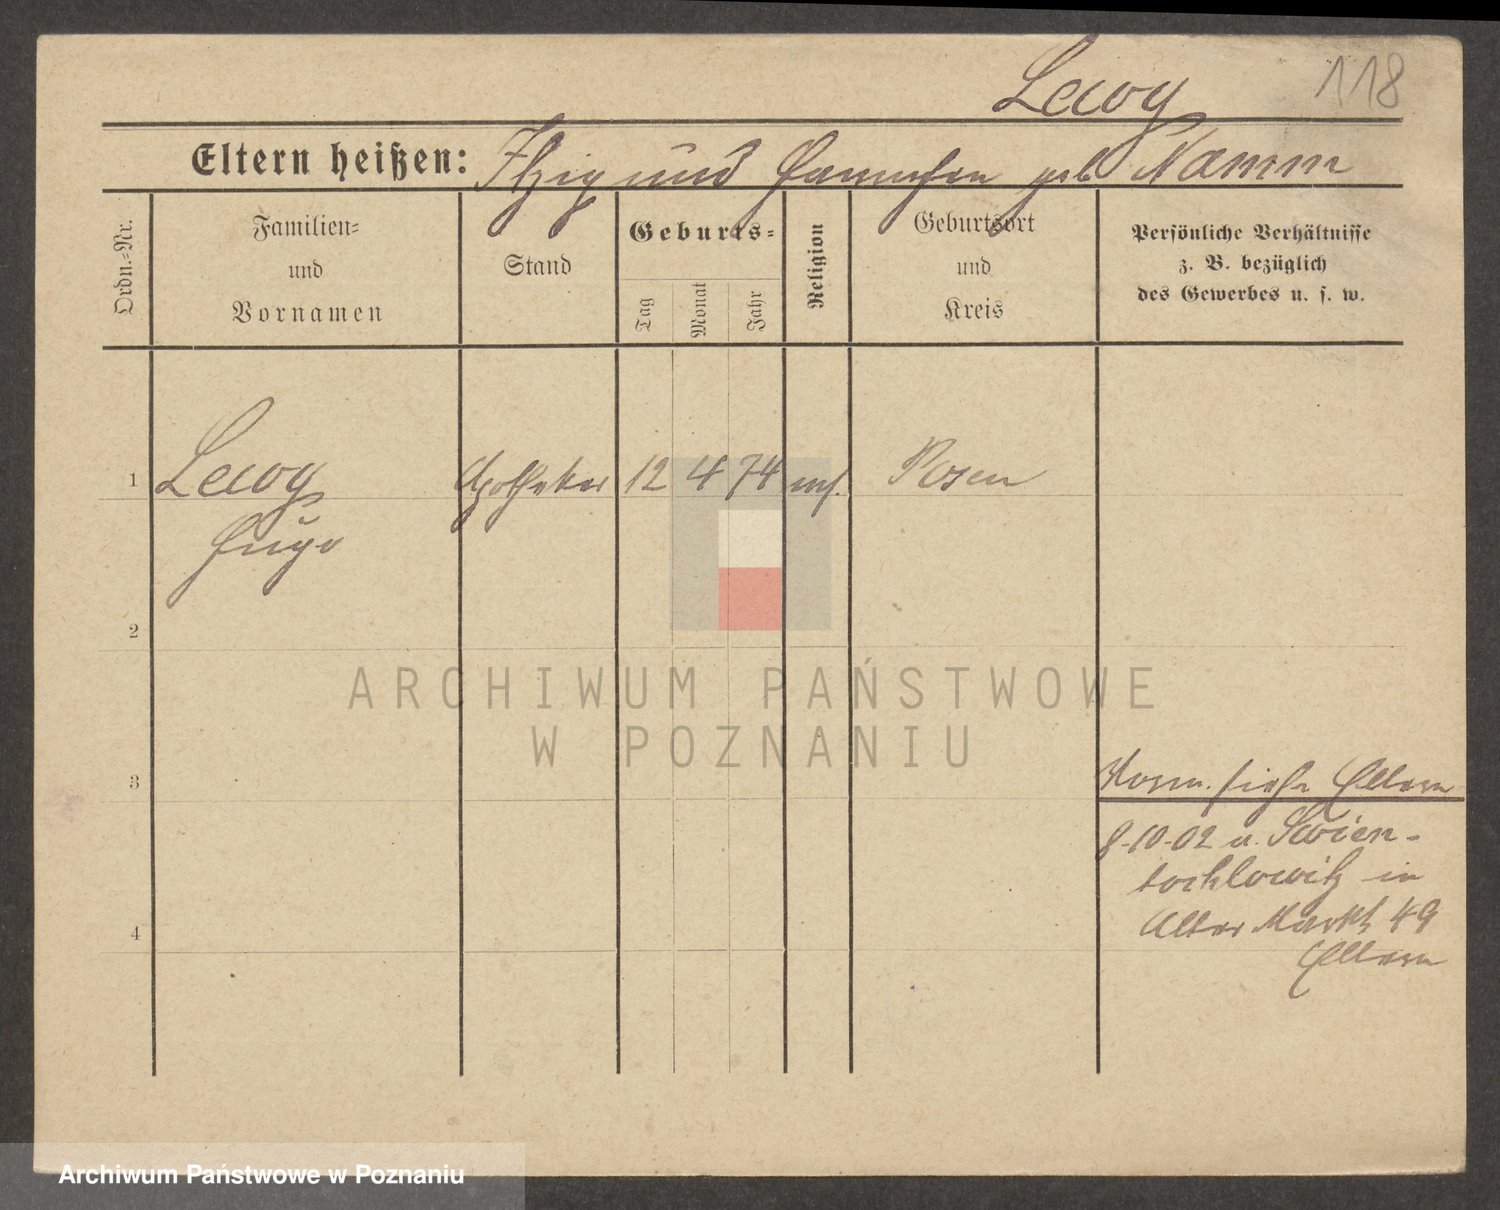 118
Lewy
Eltern heißen: Itzig und geb Namm
Ordn.-Nr.
Familien-
und
Vornamen
Stand
Geburts-
Tag
Monat
Jahr
Religion
Geburtsort
und
Kreis
Persönliche Verhältnisse
z. B. bezüglich
des Gewerbes u. s. w.
1
Lewy Apotheker 12 4 74 mos. Posen
Hugo
2
3
Vorm. siehe Eltern
8-10-02 u. Swien-
tochlowitz in
Alter Markt 49
4
Eltern
ARCHIWUM PAŃSTWOWE
W POZNANIU
Archiwum Państwowe w Poznaniu